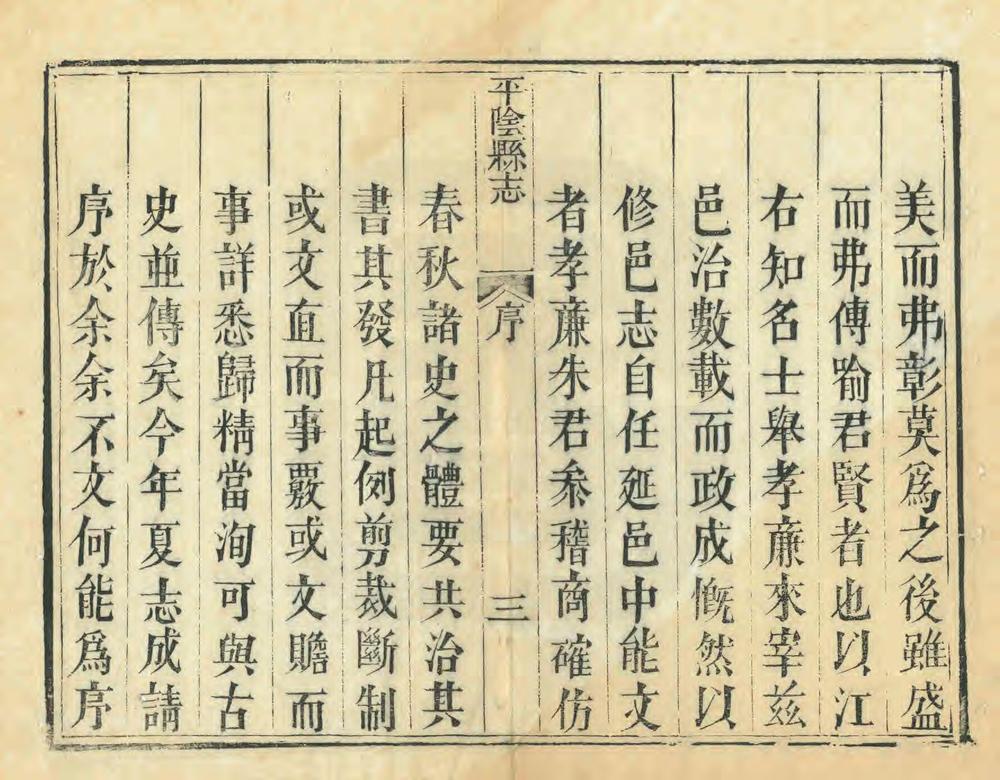 美而弗彰莫為之後雖盛
而弗傳喻君賢者也以江
右知名士舉孝廉來宰茲
邑治數載而政成慨然以
修邑志自任延邑中能文
者孝廉朱君叅稽商確仿
平陰縣志
序
三
春秋諸史之體要共治其
書其發凡起例剪裁斷制
或文直而事覈或文贍而
事詳悉歸精當洵可與古
史並傳矣今年夏志成請
序於余余不文何能為序